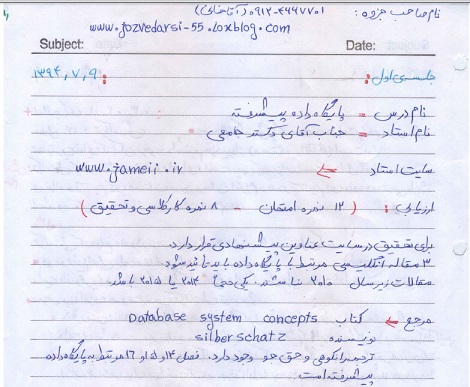 نام صاحب جزوه : ۰۹۱۲-۴۶۹۷۷۰۱ (آقاخانی)
www.jozvedarsi-55.loxblog.com
Subject: Date:
جلسه‌ی اول : ۱۳۹۴,۷,۹ :
نام درس = پایگاه داده پیشرفته
نام استاد = جناب آقای دکتر جامعی
سایت استاد ⇐ www.jameii.ir
ارزیابی : (۱۲ نمره امتحان - ۸ نمره کار کلاسی و تحقیق)
برای تحقیق در سایت عناوین پیشنهادی قرار دارد.
۳ مقاله انگلیسی مرتبط با پایگاه داده باید تائید شود
مقالات زیر سال ۲۰۱۰ نباشند. یکی حتماً ۲۰۱۴ یا ۲۰۱۵ باشد.
مرجع ⇐ کتاب Database system concepts
نویسنده silberschatz
ترجمه رانکوهی و حق جو وجود دارد. فصل ۱۴ و ۱۵ و ۱۶ مرتبط به پایگاه داده
پیشرفته است.